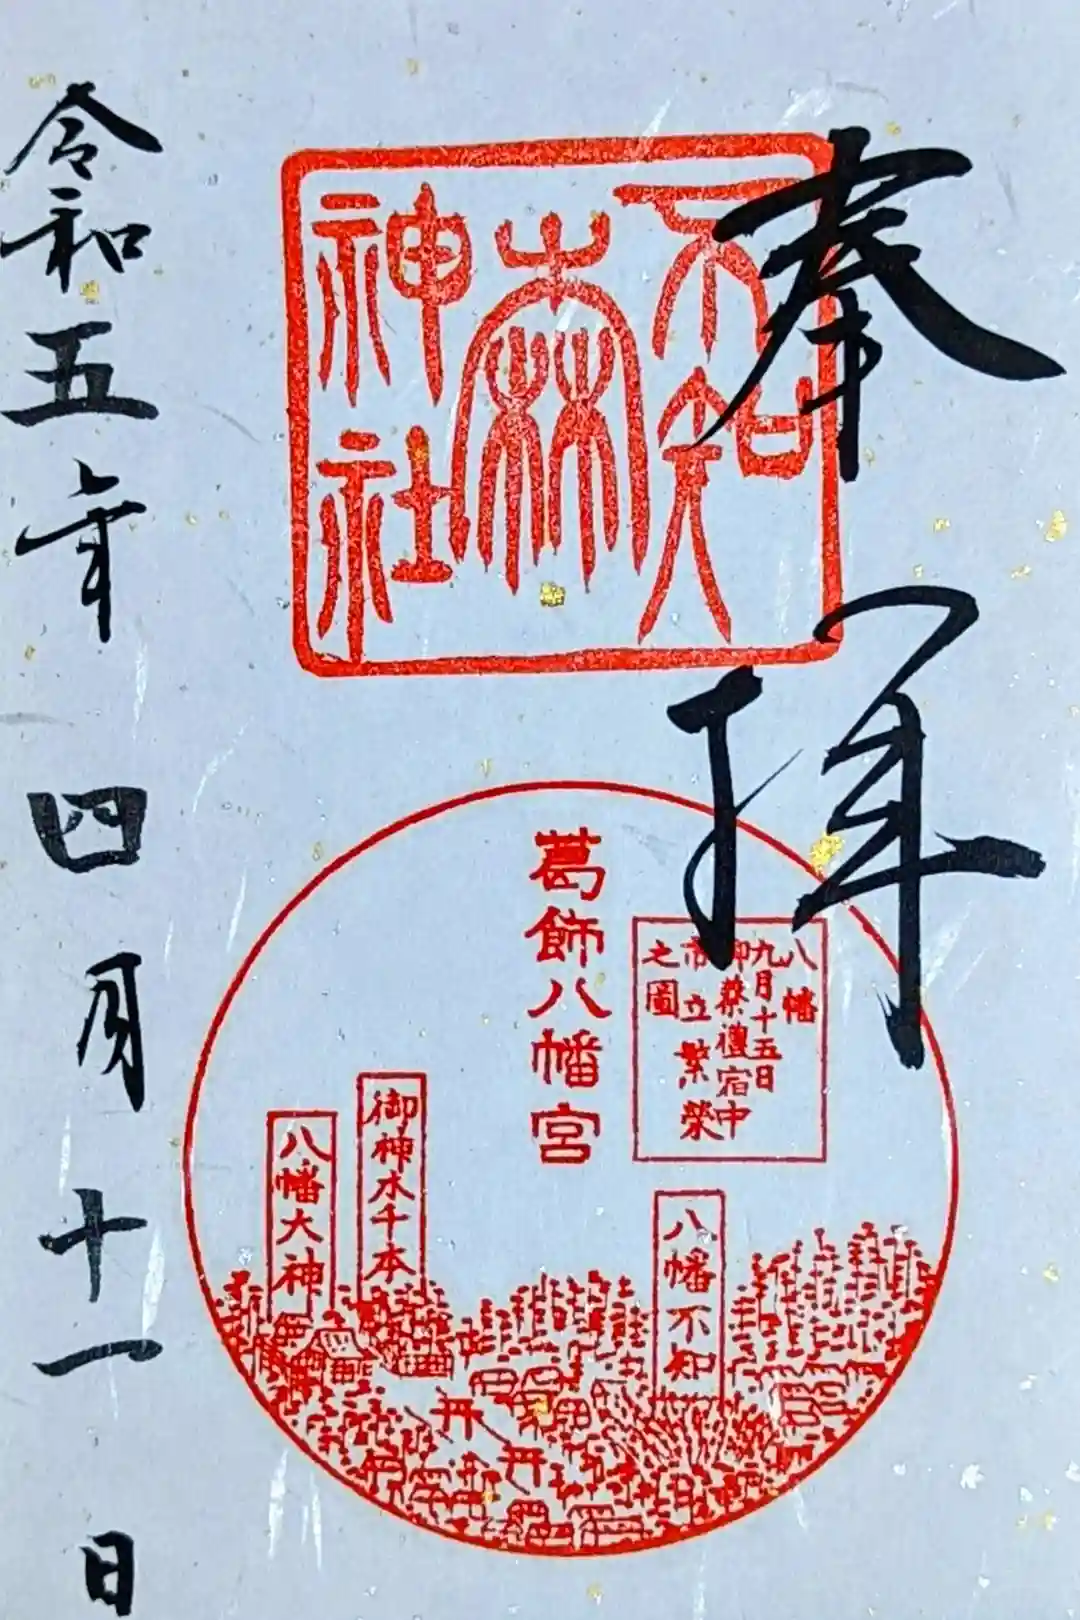 奉拝
不知
森
神社
八幡
九月十五日
御祭禮宿中
市立繁榮
之圖
八幡不知
葛飾八幡宮
御神木千本
八幡大神
令和五年四月十一日